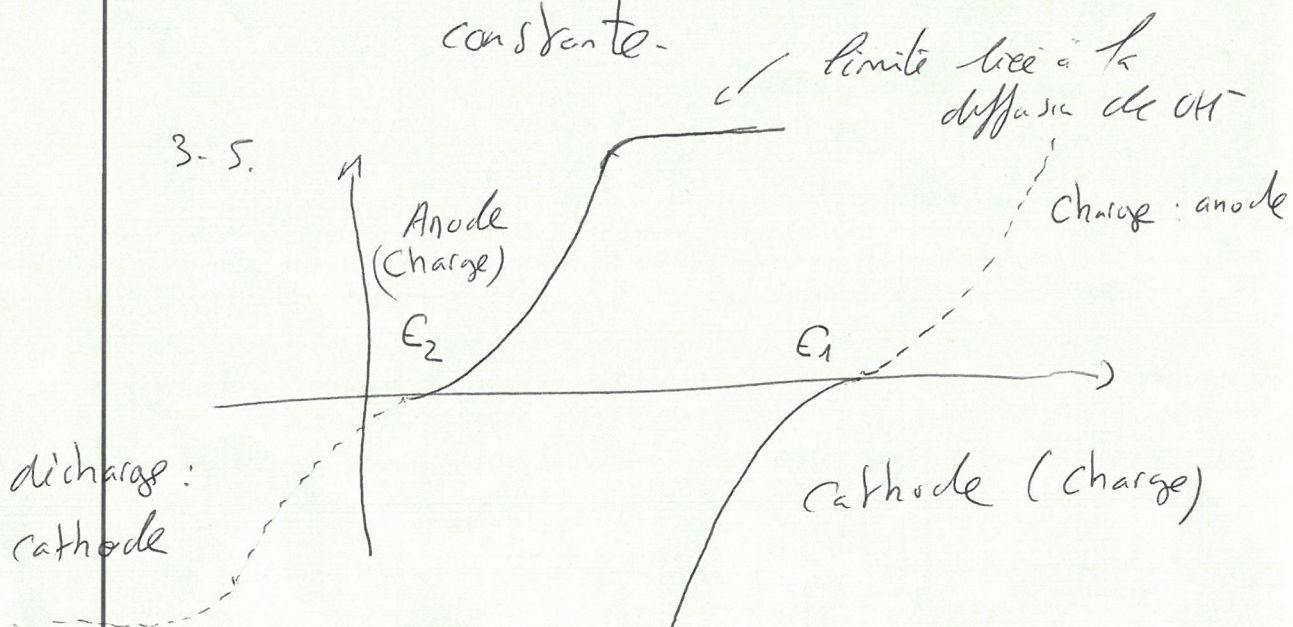 constante.
limite liée à la
diffusion de OH⁻
3-5.
Charge : anode
Anode
(Charge)
E2
E1
décharge :
cathode
cathode (Charge)